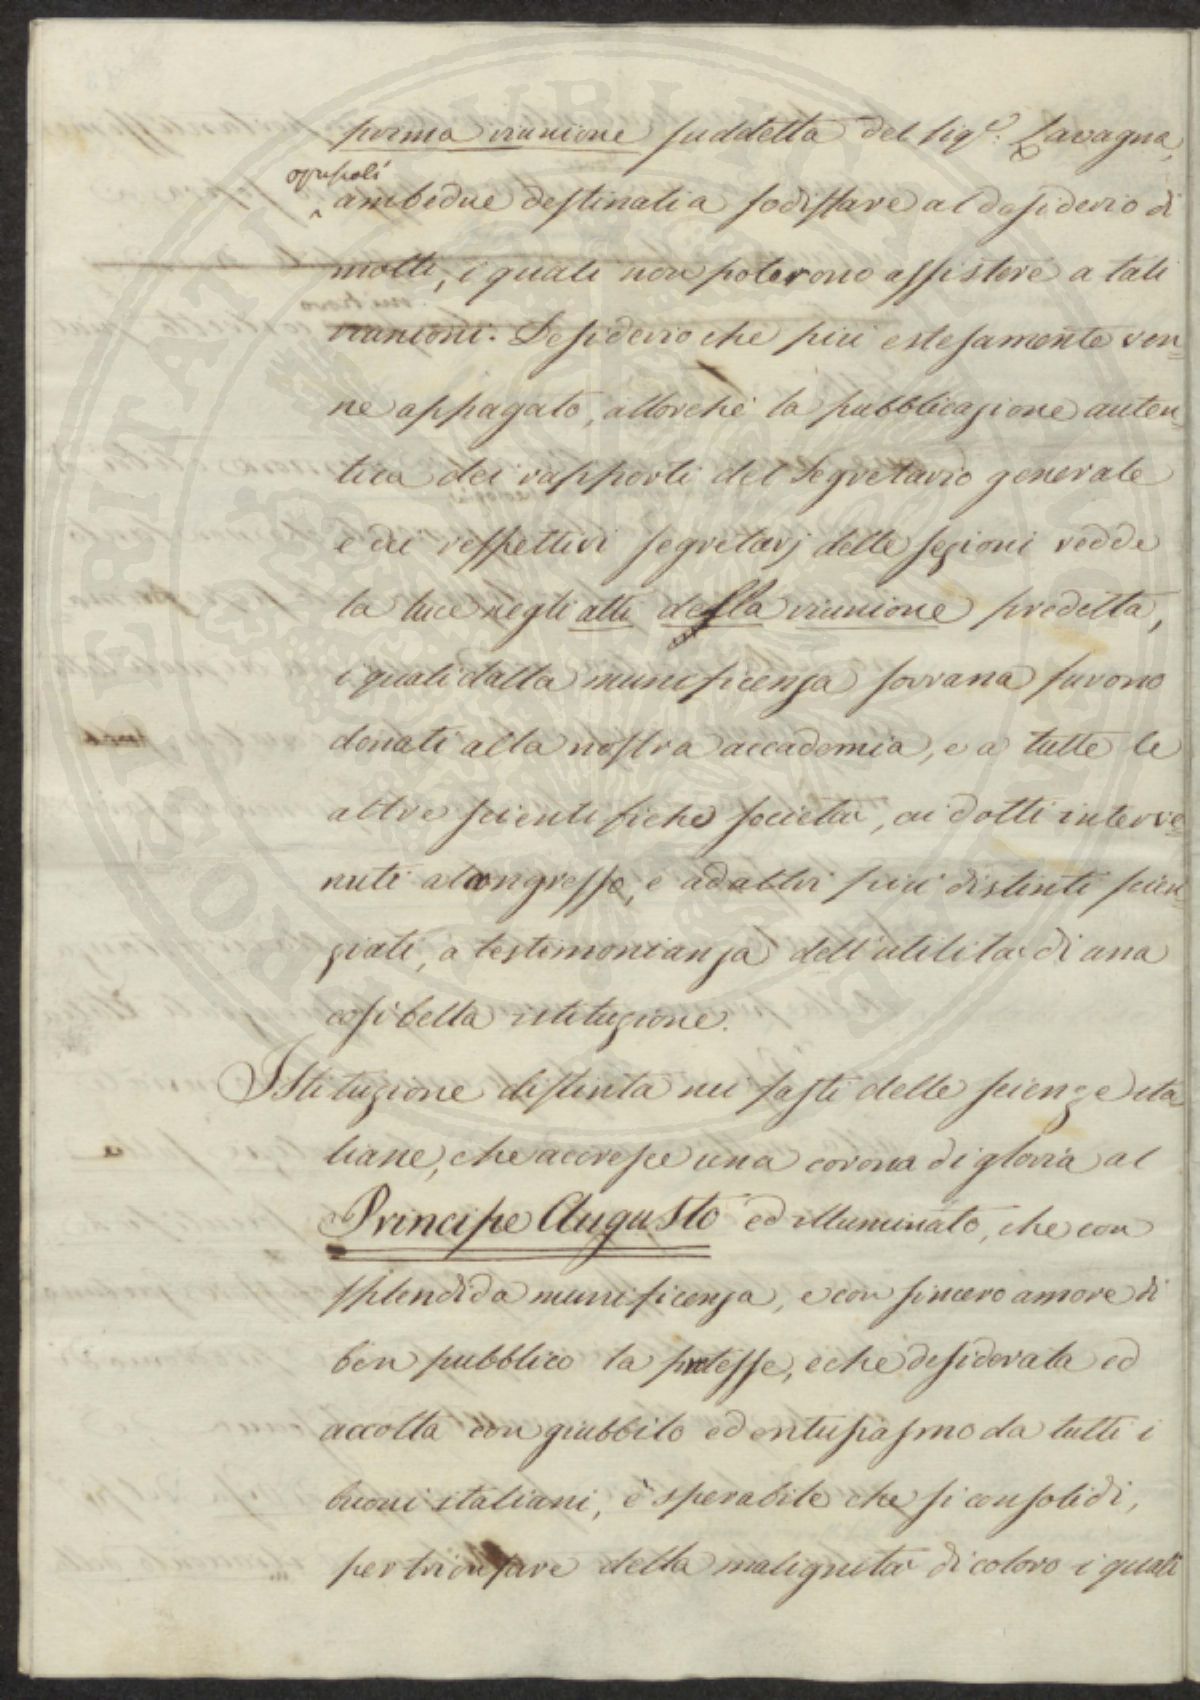 prima riunione suddetta del sig.e Lavagna,
opuscoli
ambedue destinati a sodisfare al desiderio di
molti, i quali non poterono assistere a tali
riunioni. Desiderio che più estesamente ven=
ne appagato, allorchè la pubblicazione auten=
tica dei rapporti del Segretario generale
e dei respettivi segretarj delle sezioni vedde
la luce negli atti della riunione predetta,
i quali dalla munificenza sovrana furono
donati alla nostra accademia, e a tutte le
altre scientifiche società, ai dotti interve=
nuti al congresso, e ad altri più distinti scien=
ziati, a testimonianza dell'utilità di una
così bella istituzione.
Istituzione distinta nei fasti delle scienze ita=
liane, che accresce una corona di gloria al
Principe Augusto ed illuminato, che con
splendida munificenza, e con sincero amore di
ben pubblico la protesse, e che desiderata ed
accolta con giubbilo ed entusiasmo da tutti i
buoni italiani, è sperabile che si consolidi,
per trionfare della malignità di coloro i quali